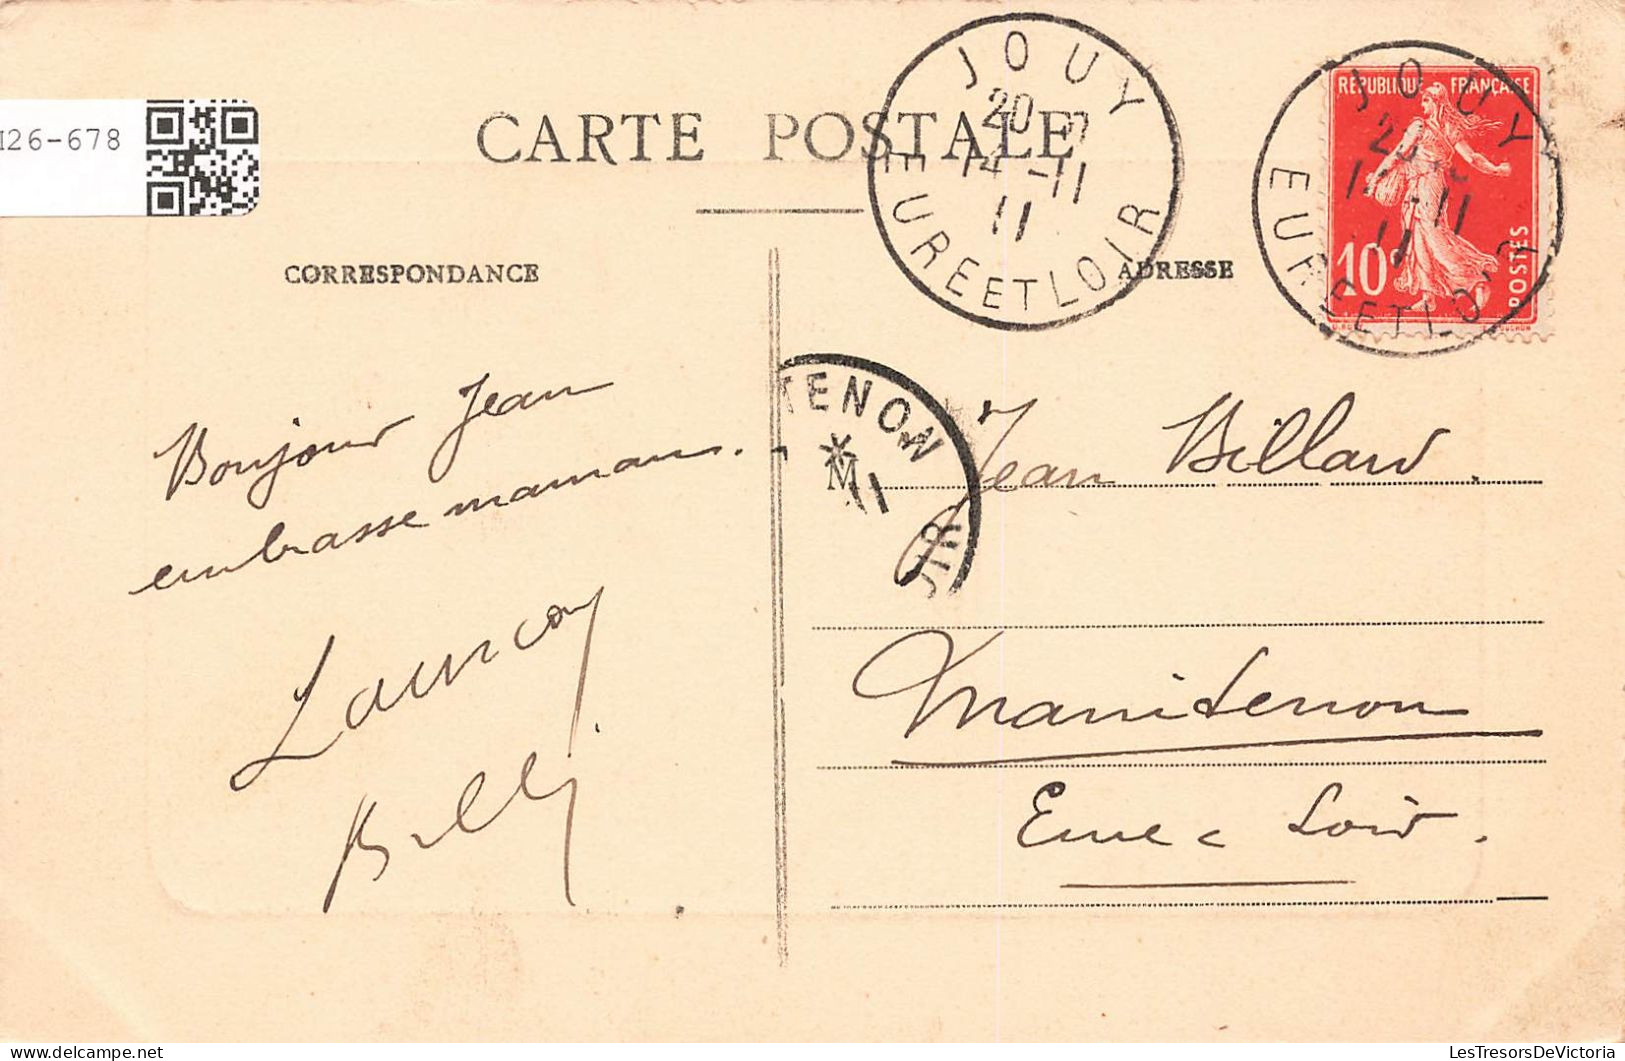 126-678
CARTE POSTALE
JOUY
20
14 -11
11
EURE ET LOIR
REPUBLIQUE FRANÇAISE
10c
POSTES
JOUY
20
-11
11
EURE ET LOIR
CORRESPONDANCE
ADRESSE
TENON
*
M
11
OIR
Bonjour Jean
embrasse maman.
Jean Billard.
Maintenon
Eure & Loir.
LesTresorsDeVictoria